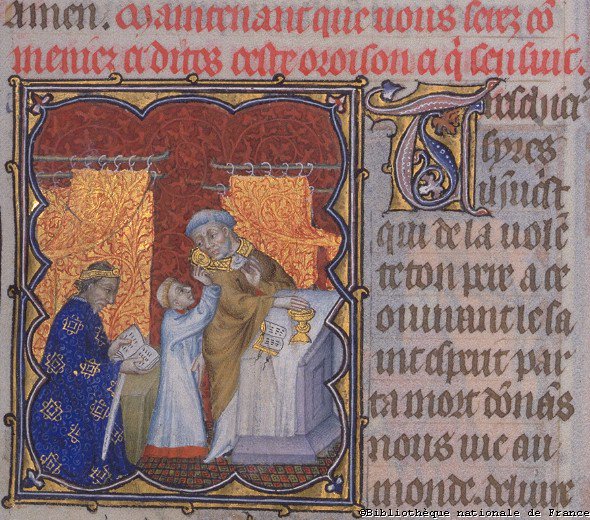 Amen. Maintenant que vous serez cō
meniez ci dites ceste oroison ci q̄ sensuit.
Treschier
sires
ihūcst
qui de la volē
te ton pere a ce
ouurant le sa
int esperit par
ta mort dōnas
nous vie au
monde. deliure
©Bibliothèque nationale de France